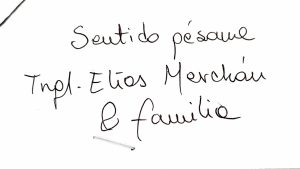 Sentido pésame
Tngl. Elías Merchán
& familia